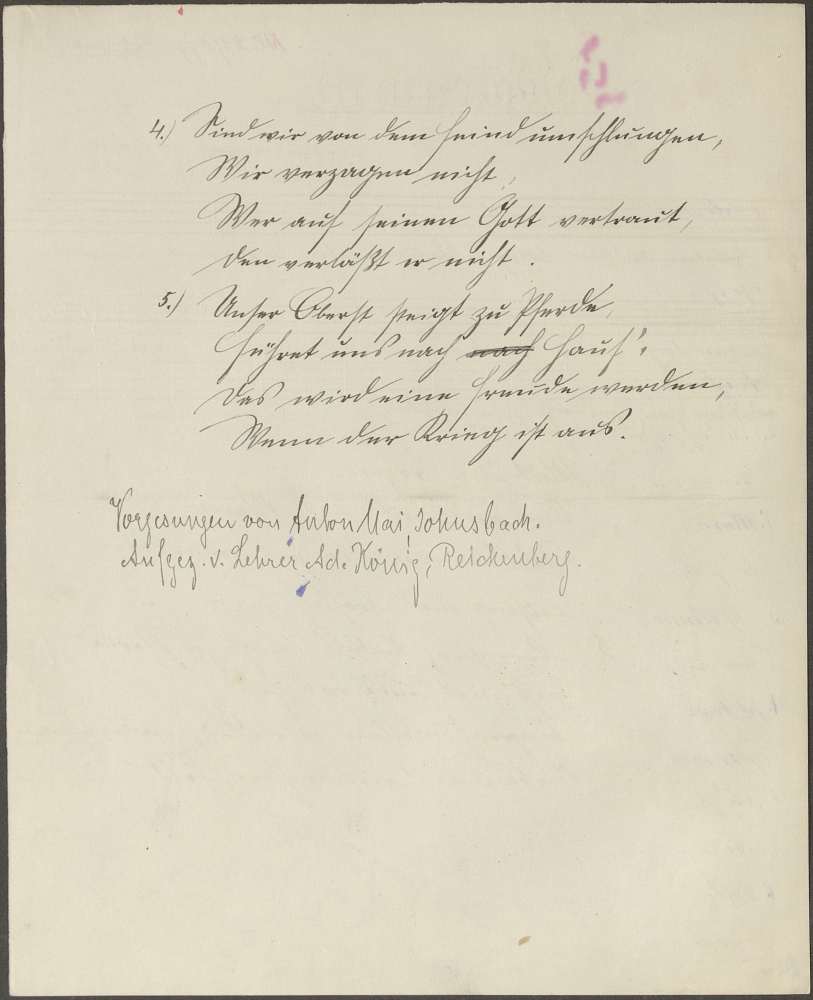 4.) Sind wir von dem Feind umschlungen,
Wir verzagen nicht,
Wer auf seinen Gott vertraut,
den verläßt er nicht.
5.) Unser Oberst steigt zu Pferde,
führet uns nach nach Haus'.
Das wird eine Freude werden,
Wenn der Krieg ist aus.
Vorgesungen von Anton Mai, Johnsbach.
Aufgez. v. Lehrer Ad. König, Reichenberg.